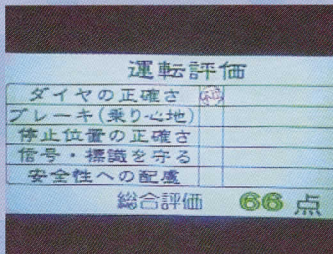 運転評価
ダイヤの正確さ
ブレーキ(乗り心地)
停止位置の正確さ
信号・標識を守る
安全性への配慮
総合評価 66 点